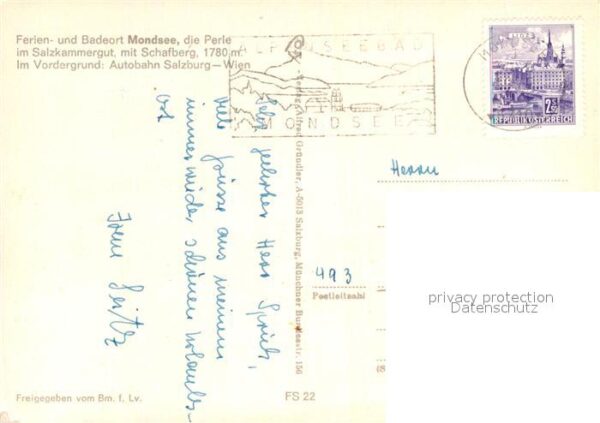 Ferien- und Badeort Mondsee, die Perle
im Salzkammergut, mit Schafberg, 1780 m
Im Vordergrund: Autobahn Salzburg—Wien
ALPENSEEBAD
MONDSEE
LINZ
2.50
REPUBLIK ÖSTERREICH
Sehr geehrter Herr
viele Grüsse aus meinem
immer wieder schönen Urlaubs-
ort
Irene Seitz
Verlag Alfred Gründler, A-5013 Salzburg, Münchner Bundesstr. 156
Herrn
493
Postleitzahl
privacy protection
Datenschutz
Freigegeben vom Bm. f. Lv.
FS 22